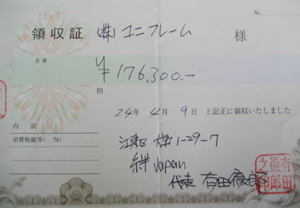 No.
領収証 ㈱ユニフレーム 様
金額
¥176,300.-
但
24年 4月 9日 上記正に領収いたしました
内訳
消費税額等( %)
江東区 大島1-29-7
絆 Japan
代表 有田